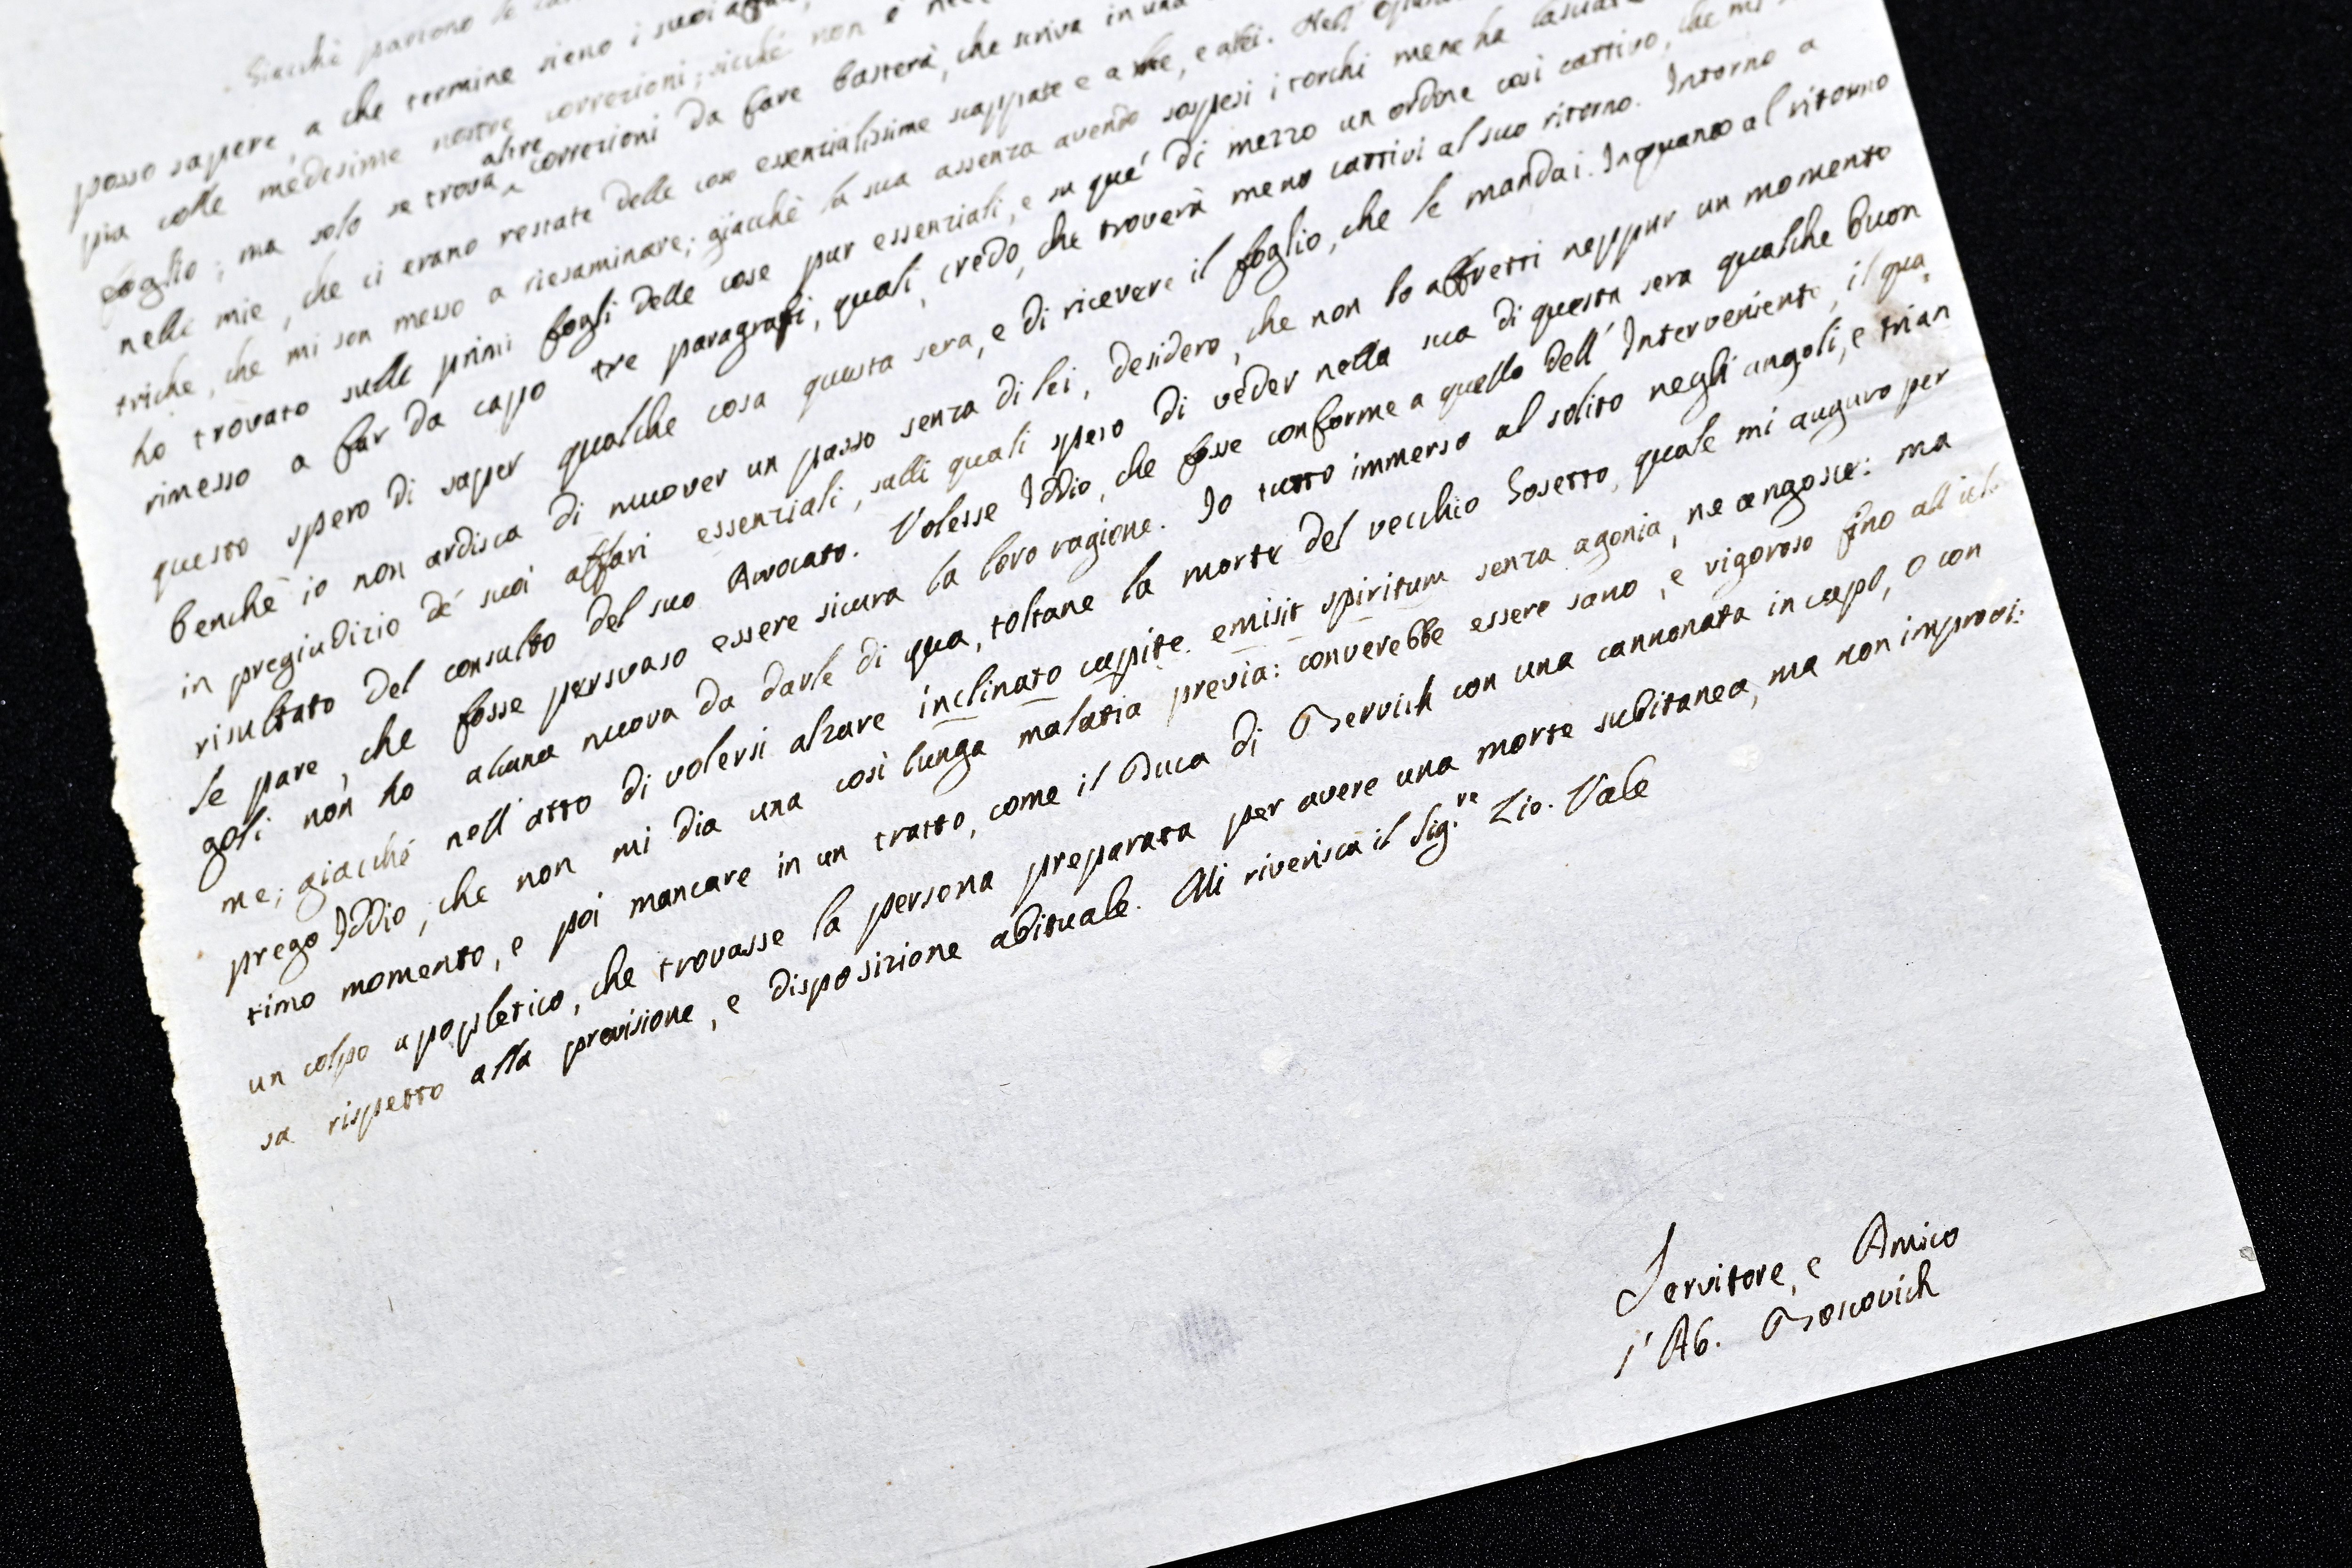 Giacchè partono le
posso sapere, a che termine sieno i suoi affari,
pia colle medesime nostre correzioni; sicchè non è
foglio; ma solo se trova altre correzioni da fare basterà, che scriva in una
nelle mie, che ci erano restate delle cose essenzialissime scappate e a me, e a lei. Nell'
triche, che mi son messo a riesaminare; giacchè la sua assenza avendo sospesi i torchi me ne ha
ho trovato sulli primi fogli delle cose pur essenziali, e su que' di mezzo un ordine così cattivo, che mi
rimesso a far da capo tre paragrafi, quali, credo, che troverà meno cattivi al suo ritorno. Intorno a
questo spero di saper qualche cosa questa sera, e di ricevere il foglio, che le mandai. Inquanto al ritorno
benchè io non ardisca di muover un passo senza di lei, desidero, che non lo affretti neppur un momento
in pregiudizio de' suoi affari essenziali, sulli quali spero di veder nella sua di questa sera qualche buon
risultato del consulto del suo Avvocato. Volesse Iddio, che fosse conforme a quello dell' Interveniente, il qua
le pare, che fosse persuaso essere sicura la loro ragione. Io tutto immerso al solito negli angoli, e trian
goli non ho alcuna nuova da darle di qua, toltane la morte del vecchio Sosetto, quale mi auguro per
me; giacchè nell' atto di volersi alzare inclinato capite emisit spiritum senza agonia, ne angosie: ma
prego Iddio, che non mi dia una così lunga malatia previa: converebbe essere sano, e vigoroso fino all' ul
timo momento, e poi mancare in un tratto, come il Duca di Bervich con una cannonata in capo, o con
un colpo apopletico, che trovasse la persona preparata per avere una morte subitanea, ma non improvi:
sa rispetto alla previsione, e disposizione abituale. Mi riverisca il Sig.re Zio. Vale
Servitore, e Amico
l' Ab. Boscovich